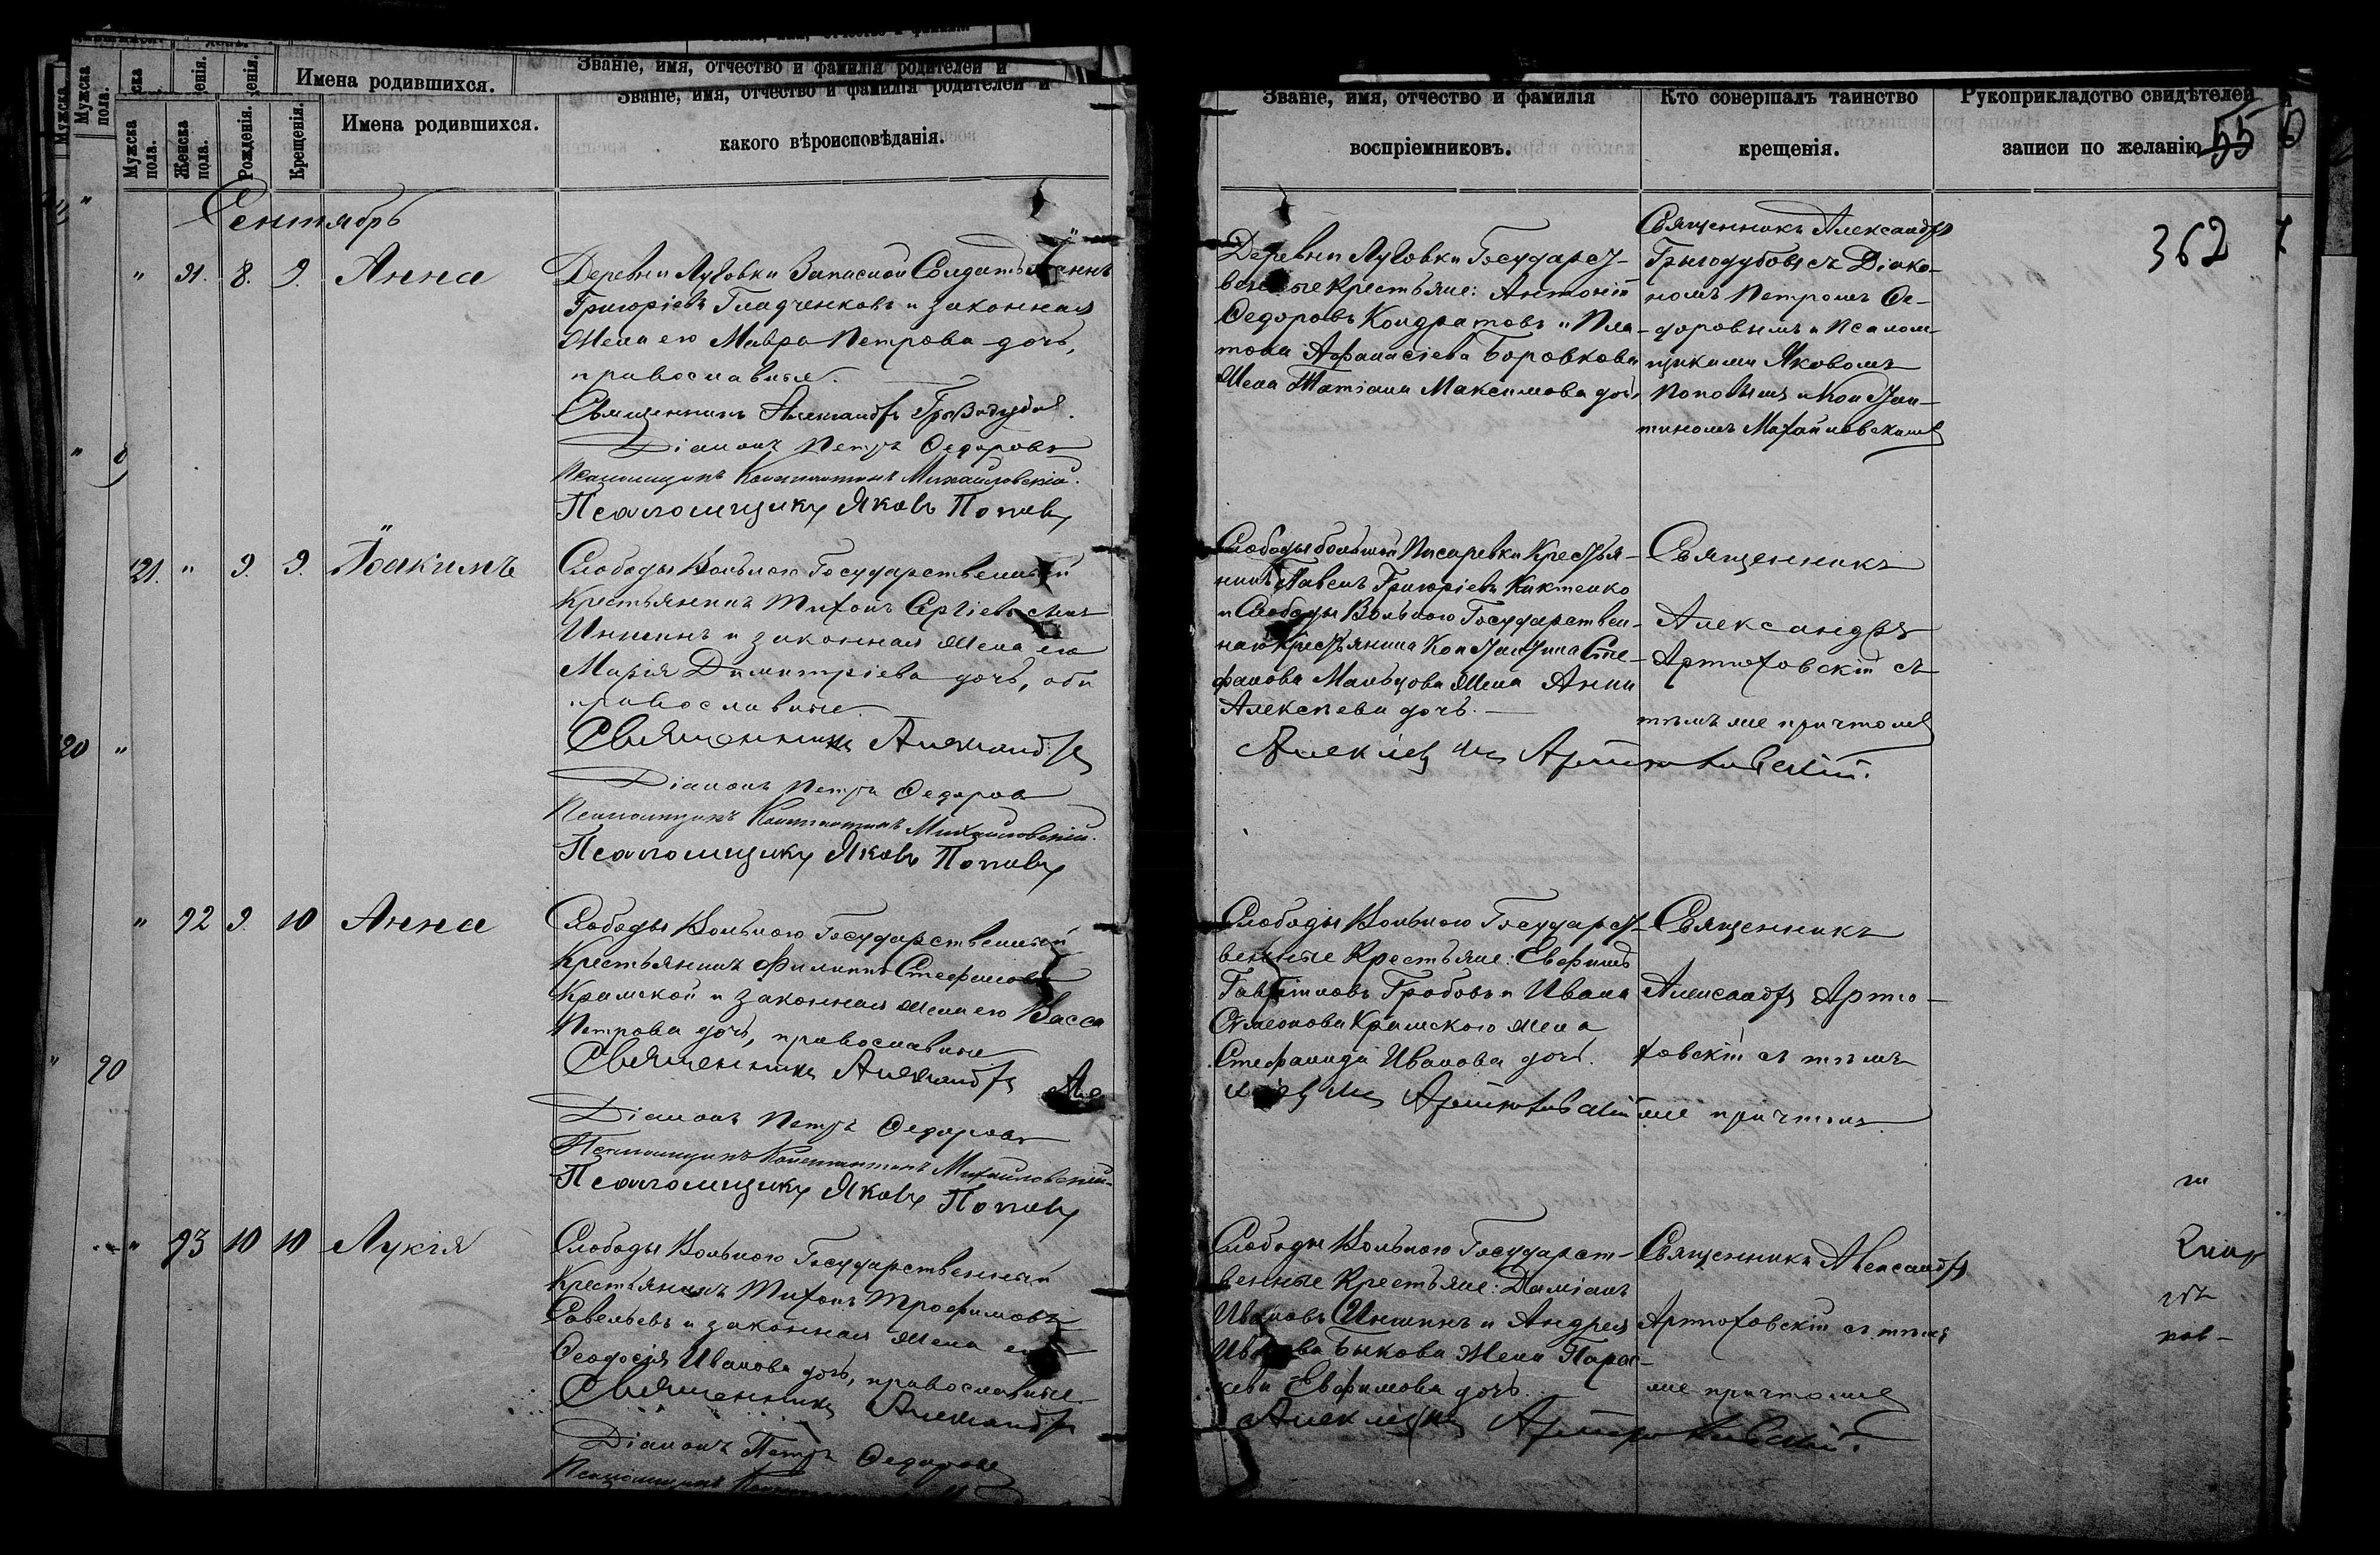 Имена родившихся.
Званіе, имя, отчество и фамилія родителей и
Мужска пола.
Женска пола.
Рожденія.
Крещенія.
Имена родившихся.
Званіе, имя, отчество и фамилія родителей и
какого вѣроисповѣданія.
Званіе, имя, отчество и фамилія
воспріемниковъ.
Кто совершалъ таинство
крещенія.
Рукоприкладство свидѣтелей
записи по желанію
55
362
Сентябрь
" 91. 8. 9. Анна
Деревни Луговки Запасной Солдатъ
Григоріевъ Гладченковъ и законная
жена его Мавра Петрова дочь,
православные.
Священникъ Александръ
Діаконъ Петръ Ѳедоровъ
Псаломщикъ Константинъ Михайловскій.
Псаломщикъ Яковъ Поповъ
Деревни Луговки Государст-
венные Крестьяне: Антоній
Ѳедоровъ Кондратовъ и Пла-
тона Аѳанасіева Боровкова
жена Татіана Максимова дочь
Священникъ Александръ
съ Діако-
номъ Петромъ Ѳе-
доровымъ и Псалом-
щиками Яковомъ
Поповымъ и Констан-
тиномъ Михайловскимъ
121. " 9. 9. Іоакимъ
Слободы Вольного Государственный
Крестьянинъ Тихонъ Сергіевъ сынъ
Иншинъ и законная жена его
Марія Димитріева дочь, оба
православные.
Священникъ Александръ
Діаконъ Петръ Ѳедоровъ
Псаломщикъ Константинъ Михайловскій.
Псаломщикъ Яковъ Поповъ
Слободы большой Писаревки Крестья-
нинъ Павелъ Григоріевъ Киктенко
и Слободы Вольного Государствен-
наго Крестьянина Константина Сте-
фанова Мальцова жена Анна
Алексѣева дочь.
Алексѣевъ Артюховскій.
Священникъ
Александръ
Артюховскій съ
тѣмъ же причтомъ
" 92 9. 10 Анна
Слободы Вольного Государственный
Крестьянинъ Филиппъ Стефановъ
Крамской и законная жена его Васса
Петрова дочь, православные
Священникъ Александръ Але
Діаконъ Петръ Ѳедоровъ
Псаломщикъ Константинъ Михайловскій.
Псаломщикъ Яковъ Поповъ
Слободы Вольного Государст-
венные Крестьяне: Евфимъ
Гавріиловъ Гробовъ и Ивана
Симеонова Крамского жена
Стефанида Иванова дочь.
Артюховскій
Священникъ
Александръ Артю-
ховскій съ тѣмъ
же причтомъ
" 93 10 10 Лукія
Слободы Вольного Государственный
Крестьянинъ Тихонъ Трофимовъ
Савельевъ и законная жена его
Ѳеодосія Иванова дочь, православные
Священникъ Александръ
Діаконъ Петръ Ѳедоровъ
Псаломщикъ
Слободы Вольного Государст-
венные Крестьяне: Даміанъ
Ивановъ Иншинъ и Андрея
Иванова Быкова жена Парас-
кева Евфимова дочь.
Артюховскій.
Священникъ Александръ
Артюховскій съ тѣмъ
же причтомъ
20 "
" 90